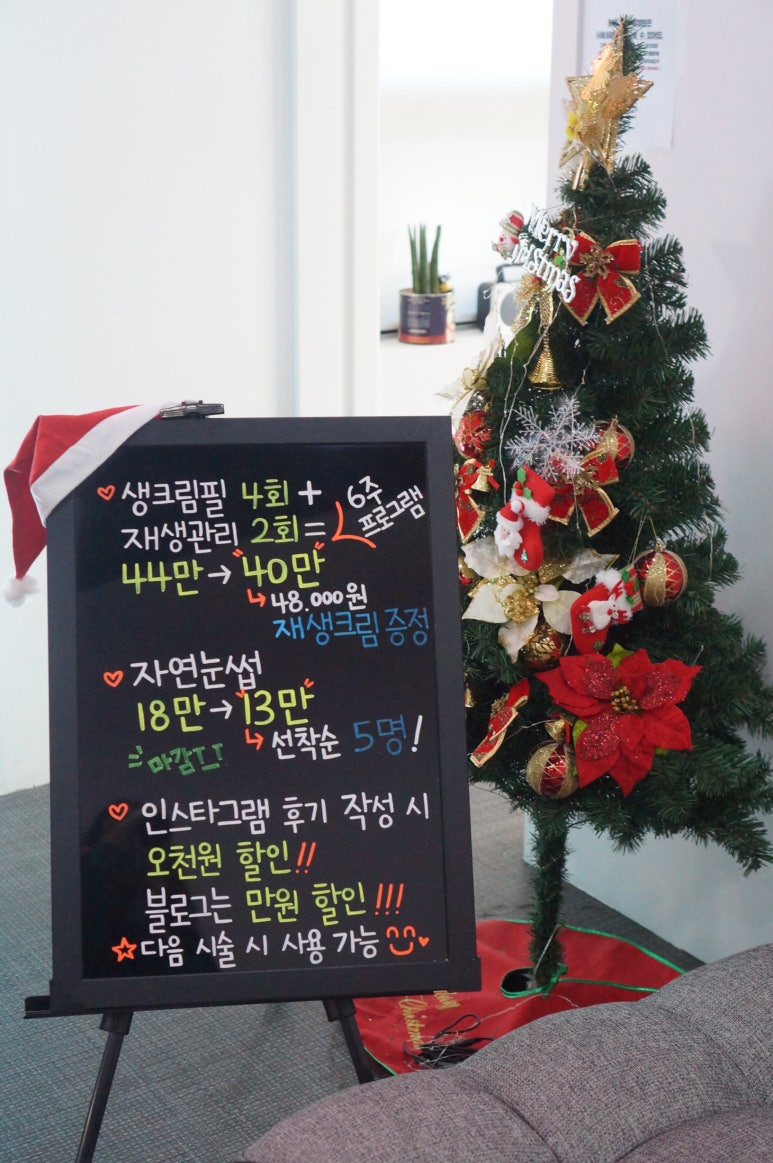 Merry
Christmas
♡ 생크림필 4회 + 6주
재생관리 2회 = 프로그램
44만 → "40만"
↳ 48.000원
재생크림 증정
♡ 자연눈썹
18만 → "13만"
↳ 선착순 5명!
마감ㅜㅜ
♡ 인스타그램 후기 작성 시
오천원 할인!!
블로그는 만원 할인!!!
☆ 다음 시술 시 사용 가능